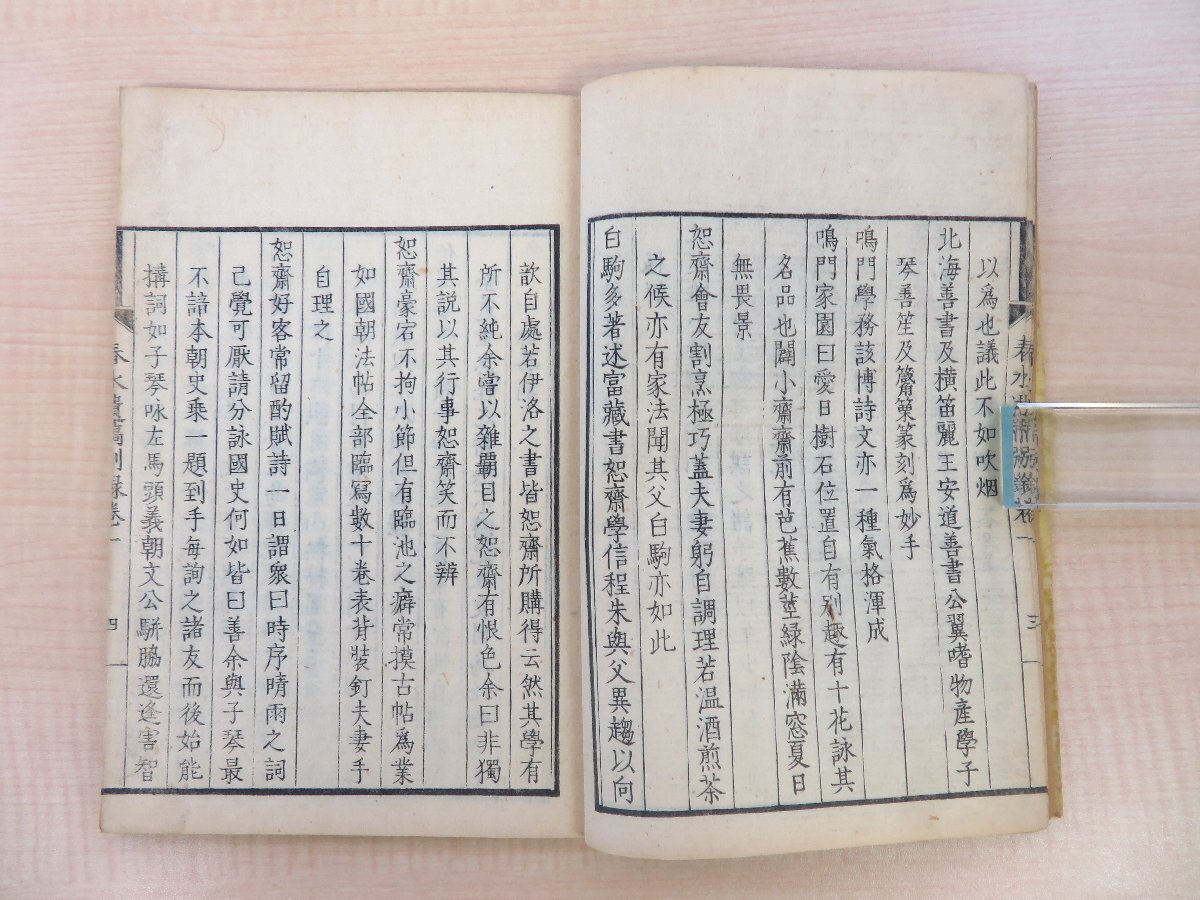 以爲也議此不如吹烟
北海善書及横笛麗王安道善書公翼嗜物產學子
琴善笙及篳篥篆刻爲妙手
鳴門學務該博詩文亦一種氣格渾成
鳴門家園曰愛日樹石位置自有別趣有十花詠其
名品也闢小齋齋前有芭蕉數莖緑陰滿窓夏日
無畏景
恕齋會友割烹極巧蓋夫妻躬自調理若温酒煎茶
之候亦有家法聞其父白駒亦如此
白駒多著述富藏書恕齋學信程朱與父異趨以向
春水遺稿別録卷一
三
歆自處若伊洛之書皆恕齋所購得云然其學有
所不純余嘗以雜覇目之恕齋有恨色余曰非獨
其説以其行事恕齋笑而不辨
恕齋豪宕不拘小節但有臨池之癖常摸古帖爲業
如國朝法帖全部臨寫數十卷表背裝釘夫妻手
自理之
恕齋好客常留酌賦詩一日謂衆曰時序晴雨之詞
己覺可厭請分詠國史何如皆曰善余與子琴最
不諳本朝史乘一題到手每詢之諸友而後始能
搆詞如子琴咏左馬頭義朝文公駢脇還逢害智
春水遺稿別録卷一
四